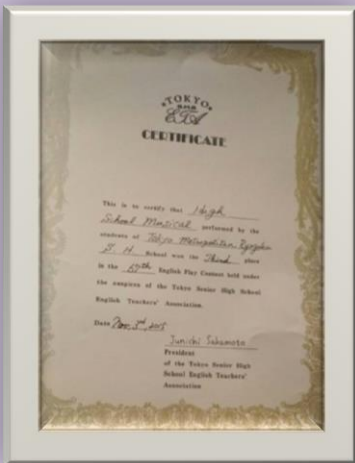 TOKYO
ETA
CERTIFICATE
This is to certify that High
School Musical performed by the
students of Tokyo Metropolitan
S. H. School won the Third place
in the 69th English Play Contest held under
the auspices of the Tokyo Senior High School
English Teachers' Association.
Date Nov. 3rd, 2015
Junichi Sakamoto
President
of the Tokyo Senior High
School English Teachers'
Association